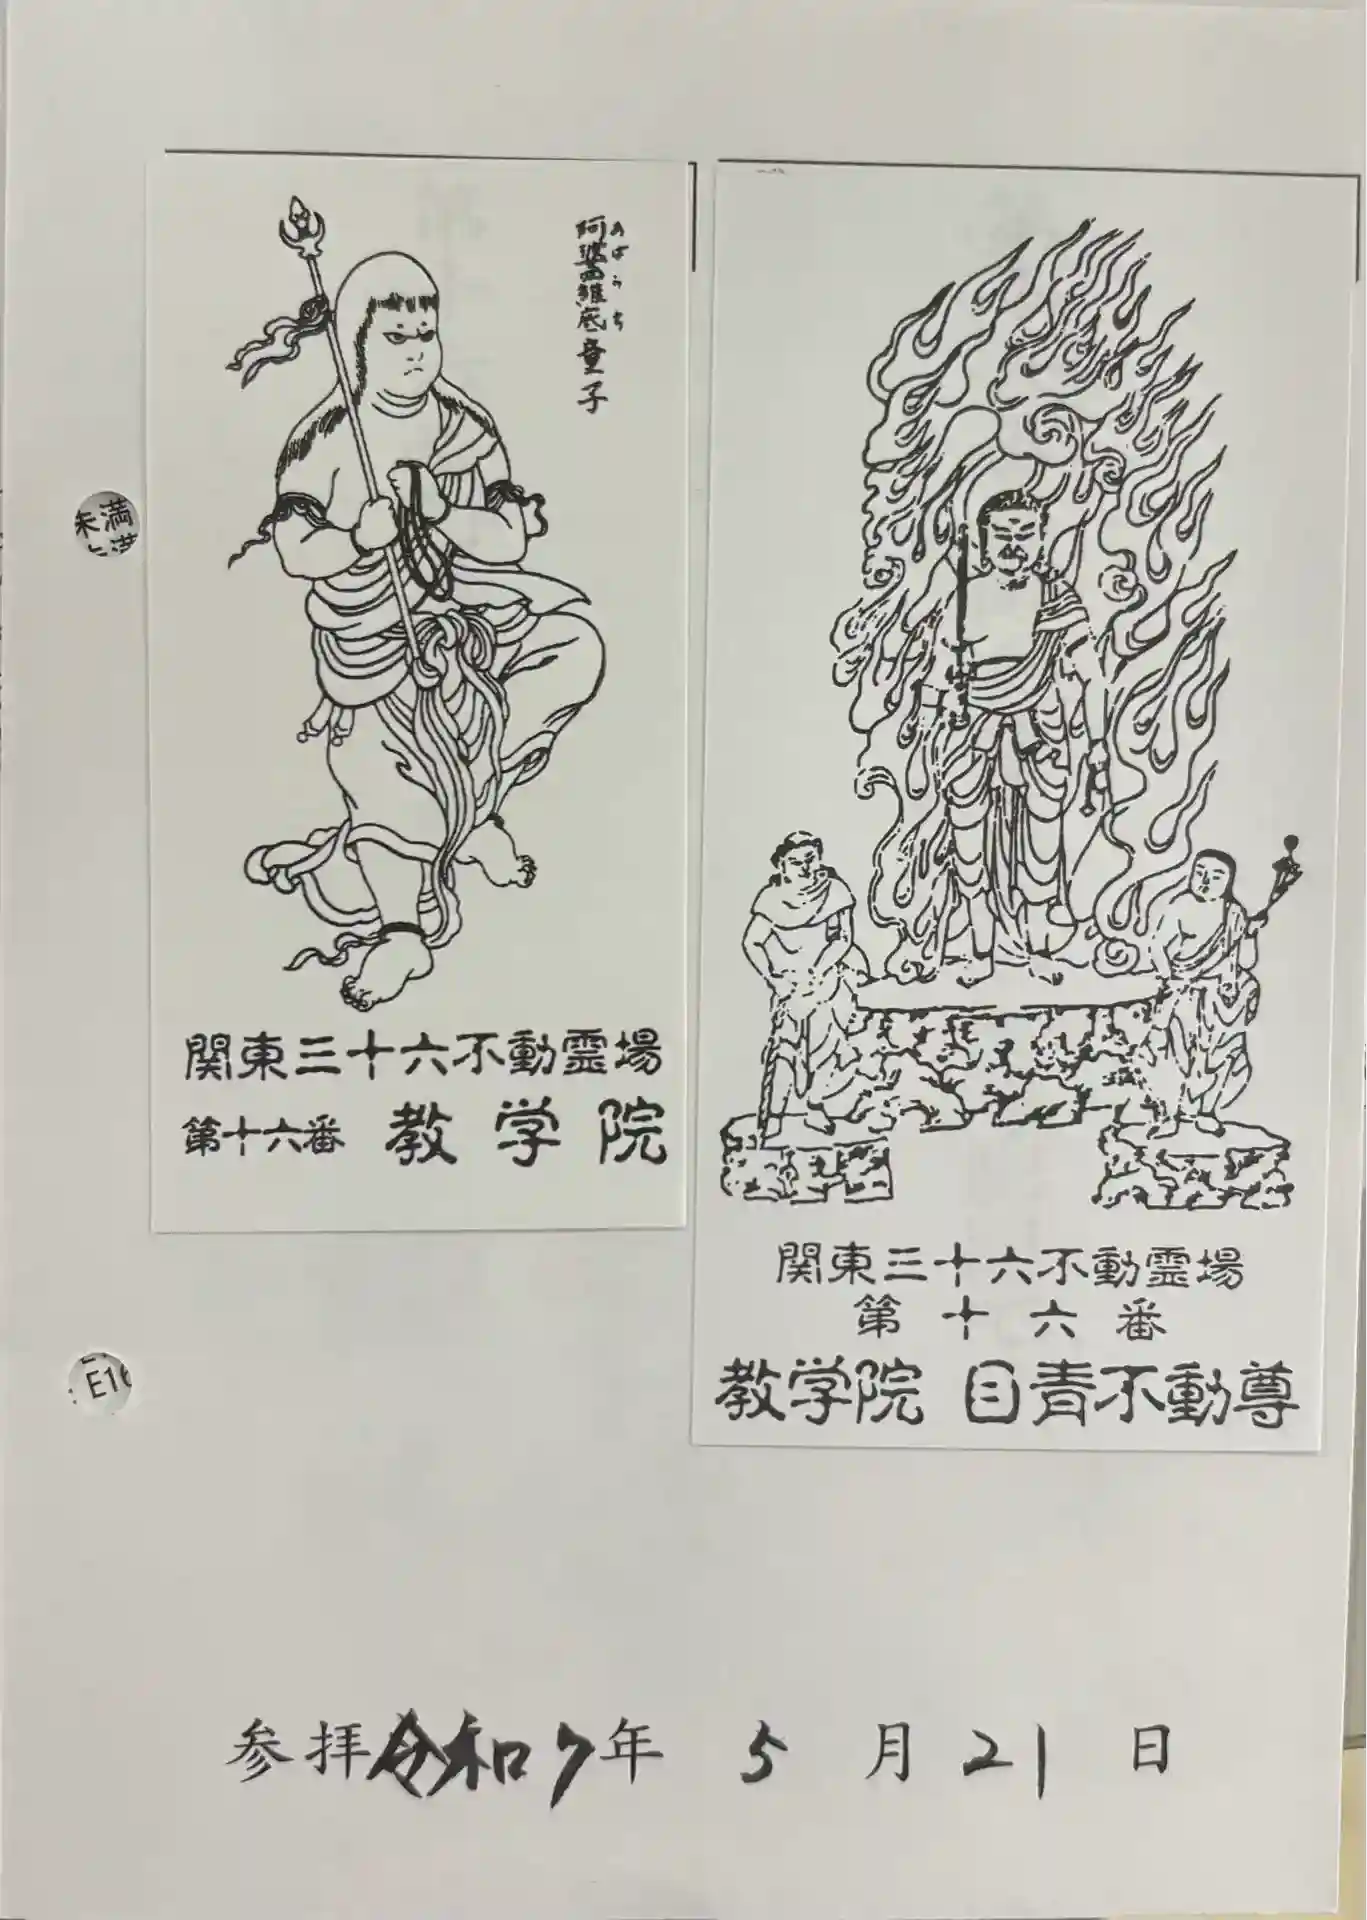 阿婆羅底童子
あばらち
関東三十六不動霊場
第十六番 教学院
関東三十六不動霊場
第十六番
教学院 目青不動尊
未満
E16
参拝令和7年 5月21日